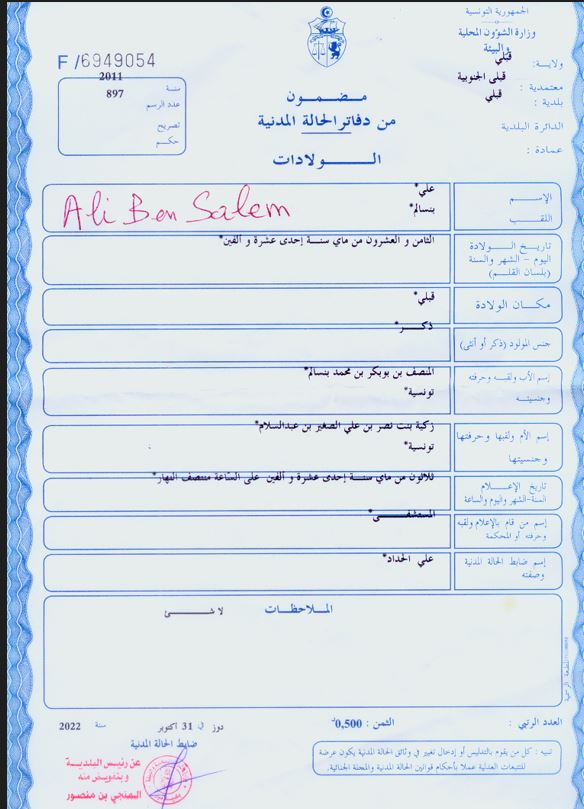 الجمهورية التونسية
وزارة الشؤون المحلية
والبيئة
ولاية: قبلي
معتمدية : قبلى الجنوبية
بلدية : قبلي
الدائرة البلدية
عمادة :
F /6949054
سنة 2011
عدد الرسم 897
تصريح
حكم
مضمون
من دفاتر الحالة المدنية
الولادات
الإسم علي*
اللقب بنسالم*
Ali Ben Salem
تاريخ الولادة
اليوم - الشهر والسنة
(بلسان القلم)
الثامن و العشرون من ماي سنة إحدى عشرة و ألفين*
مكان الولادة قبلي*
جنس المولود (ذكر أو أنثى) ذكر*
إسم الأب ولقبه وحرفته
وجنسيته
المنصف بن بوبكر بن محمد بنسالم*
تونسية*
إسم الأم ولقبها وحرفتها
وجنسيتها
زكية بنت نصر بن علي الصغير بن عبدالسلام*
تونسية*
تاريخ الإعلام
السنة-الشهر واليوم والساعة
ثلاثون من ماي سنة إحدى عشرة و ألفين على الساعة منتصف النهار*
إسم من قام بالإعلام ولقبه
وحرفته أو المحكمة
المستشفى*
إسم ضابط الحالة المدنية
وصفته
علي الحداد*
الملاحظات
لا شئ
العدد الرتبي :
الثمن : 0,500د
دوز في 31 اكتوبر سنة 2022
ضابط الحالة المدنية
تنبيه : كل من يقوم بالتدليس أو إدخال تغيير في وثائق الحالة المدنية يكون عرضة
للتتبعات العدلية عملا بأحكام قوانين الحالة المدنية والمجلة الجنائية.
عن رئيس البلدية
وبتفويض منه
المنجي بن منصور